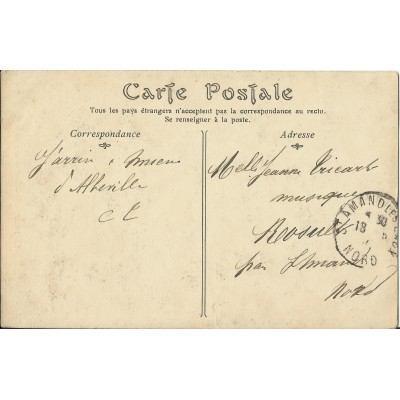 Carte Postale
Tous les pays étrangers n'acceptent pas la correspondance au recto.
Se renseigner à la poste.
Correspondance
Adresse
d'Abbeville
Melle Jeanne Vicart
musique
Rosult
par St Amand
Nord
ST AMAND LES EAUX
18 5
NORD